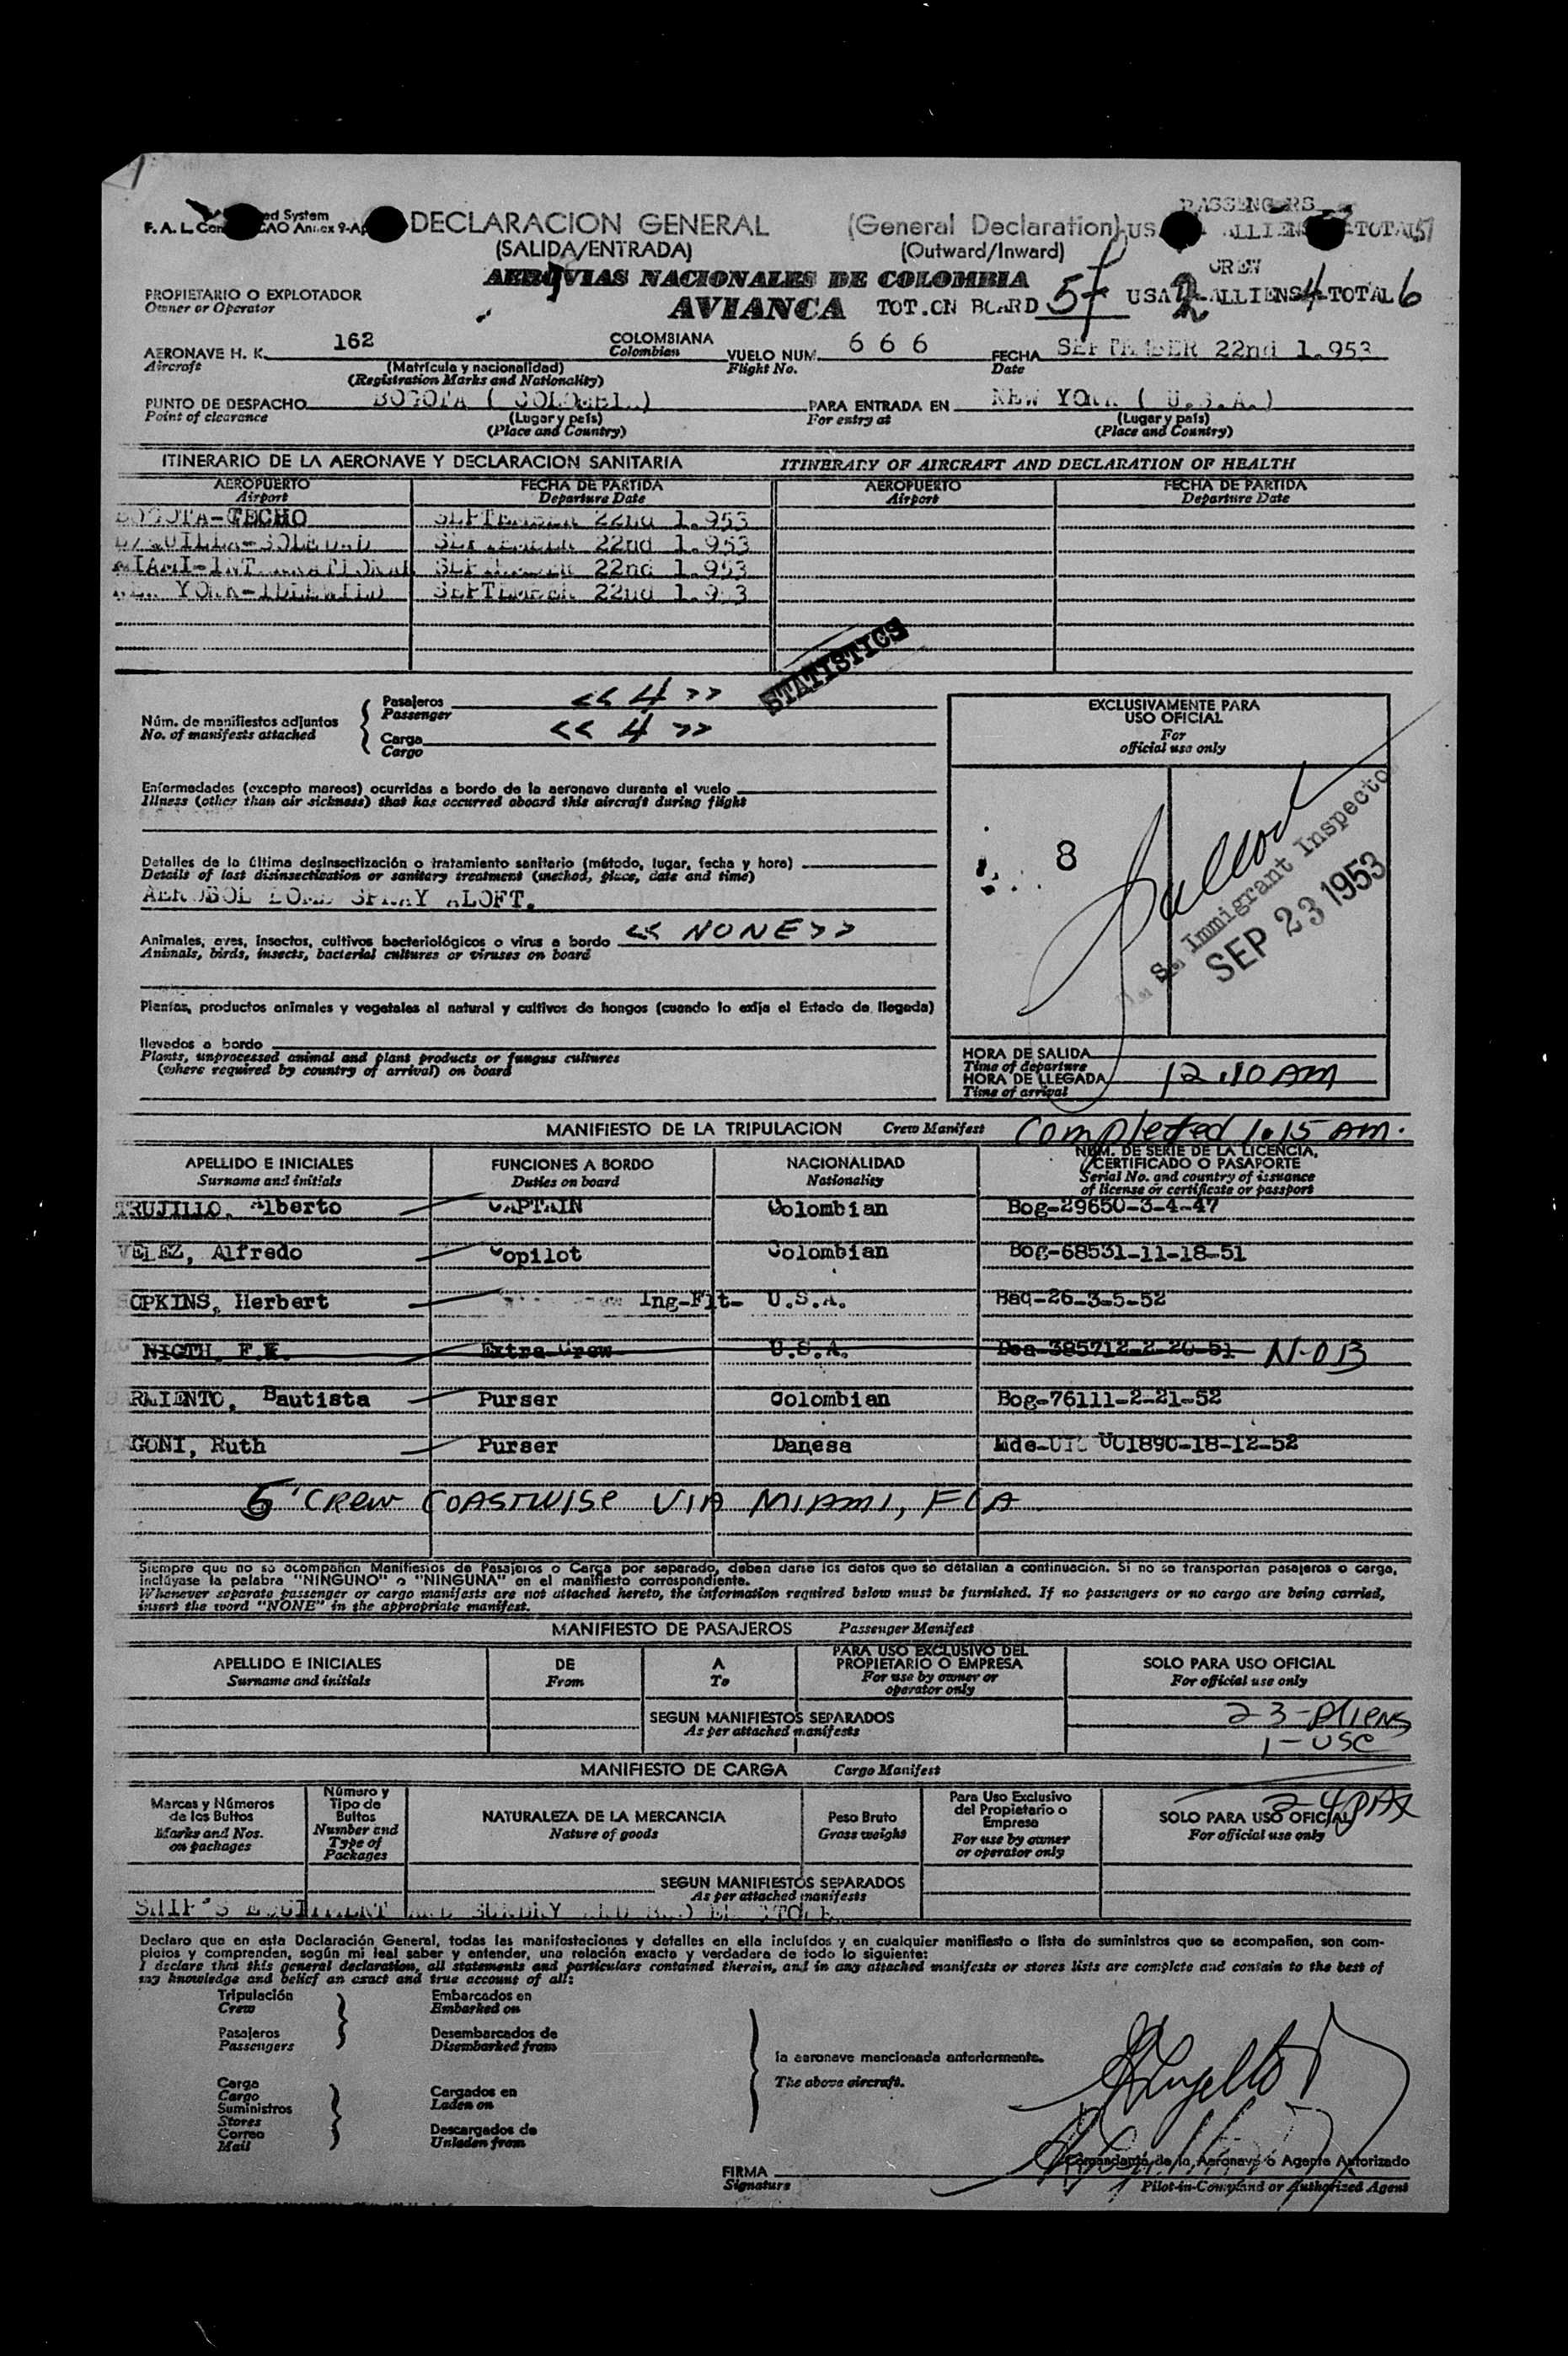 PASSENGERS
ed System
F. A. L. Con CAO Annex 9-Ap
DECLARACION GENERAL (General Declaration) US ALLIENS TOTAL 51
(SALIDA/ENTRADA) (Outward/Inward)
CREW
AEROVIAS NACIONALES DE COLOMBIA
PROPIETARIO O EXPLOTADOR
Owner or Operator
AVIANCA TOT.ON BOARD USA 2 ALLIENS 4 TOTAL 6
AERONAVE H. K. 162 COLOMBIANA VUELO NUM. 6 6 6 FECHA SEPTEMBER 22nd 1.953
Aircraft (Matrícula y nacionalidad) Colombian Flight No. Date
(Registration Marks and Nationality)
PUNTO DE DESPACHO BOGOTA ( COLOMBIA) PARA ENTRADA EN NEW YORK ( U.S.A.)
Point of clearance (Lugar y país) For entry at (Lugar y país)
(Place and Country) (Place and Country)
ITINERARIO DE LA AERONAVE Y DECLARACION SANITARIA ITINERARY OF AIRCRAFT AND DECLARATION OF HEALTH
AEROPUERTO FECHA DE PARTIDA AEROPUERTO FECHA DE PARTIDA
Airport Departure Date Airport Departure Date
BOGOTA-TECHO SEPTEMBER 22nd 1.953
B/QUILLA-SOLEDAD SEPTEMBER 22nd 1.953
MIAMI-INTERNATIONAL SEPTEMBER 22nd 1.953
NEW YORK-IDLEWILD SEPTEMBER 22nd 1.953
STATISTICS
Núm. de manifiestos adjuntos
No. of manifests attached
Pasajeros << 4 >>
Passenger
Carga << 4 >>
Cargo
EXCLUSIVAMENTE PARA
USO OFICIAL
For
official use only
Enfermedades (excepto mareos) ocurridas a bordo de la aeronave durante el vuelo
Illness (other than air sickness) that has occurred aboard this aircraft during flight
8
U. S. Immigrant Inspector
SEP 23 1953
Detalles de la última desinsectización o tratamiento sanitario (método, lugar, fecha y hora)
Details of last disinsectization or sanitary treatment (method, place, date and time)
AEROBOL BOMB SPRAY ALOFT.
Animales, aves, insectos, cultivos bacteriológicos o virus a bordo << NONE >>
Animals, birds, insects, bacterial cultures or viruses on board
Plantas, productos animales y vegetales al natural y cultivos de hongos (cuando lo exija el Estado de llegada)
llevados a bordo
Plants, unprocessed animal and plant products or fungus cultures
(where required by country of arrival) on board
HORA DE SALIDA
Time of departure
HORA DE LLEGADA 12.10 AM
Time of arrival
MANIFIESTO DE LA TRIPULACION Crew Manifest Completed 1.15 AM.
APELLIDO E INICIALES FUNCIONES A BORDO NACIONALIDAD NUM. DE SERIE DE LA LICENCIA,
CERTIFICADO O PASAPORTE
Surname and initials Duties on board Nationality Serial No. and country of issuance
of license or certificate or passport
TRUJILLO, Alberto CAPTAIN Colombian Bog-29650-3-4-47
VELEZ, Alfredo Copilot Colombian Bog-68531-11-18-51
OPKINS, Herbert Ing-Flt- U.S.A. Baq-26-3-5-52
NIGTH, F.E. Extra Crew U.S.A. 385712-2-20-51 N-OB
RMIENTO, Bautista Purser Colombian Bog-76111-2-21-52
GONI, Ruth Purser Danesa 01890-18-12-52
6 CREW COASTWISE VIA MIAMI, FLA
Siempre que no se acompañen Manifiestos de Pasajeros o Carga por separado, deben darse los datos que se detallan a continuación. Si no se transportan pasajeros o carga,
inclúyase la palabra "NINGUNO" o "NINGUNA" en el manifiesto correspondiente.
Whenever separate passenger or cargo manifests are not attached hereto, the information required below must be furnished. If no passengers or no cargo are being carried,
insert the word "NONE" in the appropriate manifest.
MANIFIESTO DE PASAJEROS Passenger Manifest
APELLIDO E INICIALES DE A PARA USO EXCLUSIVO DEL PROPIETARIO O EMPRESA SOLO PARA USO OFICIAL
Surname and initials From To For use by owner or operator only For official use only
SEGUN MANIFIESTOS SEPARADOS 23-Aliens
As per attached manifests
1-USC
MANIFIESTO DE CARGA Cargo Manifest
24 PAX
Marcas y Números de los Bultos Número y Tipo de Bultos NATURALEZA DE LA MERCANCIA Peso Bruto Para Uso Exclusivo del Propietario o Empresa SOLO PARA USO OFICIAL
Marks and Nos. on packages Number and Type of Packages Nature of goods Gross weight For use by owner or operator only For official use only
SEGUN MANIFIESTOS SEPARADOS
As per attached manifests
SHIP'S EQUIPMENT AND SUNDRY AND
Declaro que en esta Declaración General, todas las manifestaciones y detalles en ella incluídos y en cualquier manifiesto o lista de suministros que se acompañen, son com-
pletos y comprenden, según mi leal saber y entender, una relación exacta y verdadera de todo lo siguiente:
I declare that this general declaration, all statements and particulars contained therein, and in any attached manifests or stores lists are complete and contain to the best of
my knowledge and belief an exact and true account of all:
Tripulación Embarcados en
Crew Embarked on
Pasajeros Desembarcados de
Passengers Disembarked from
la aeronave mencionada anteriormente.
The above aircraft.
Carga Cargados en
Cargo Laden on
Suministros
Stores
Correo Descargados de
Mail Unladen from
FIRMA
Signature
Comandante de la Aeronave o Agente Autorizado
Pilot-in-Command or Authorized Agent